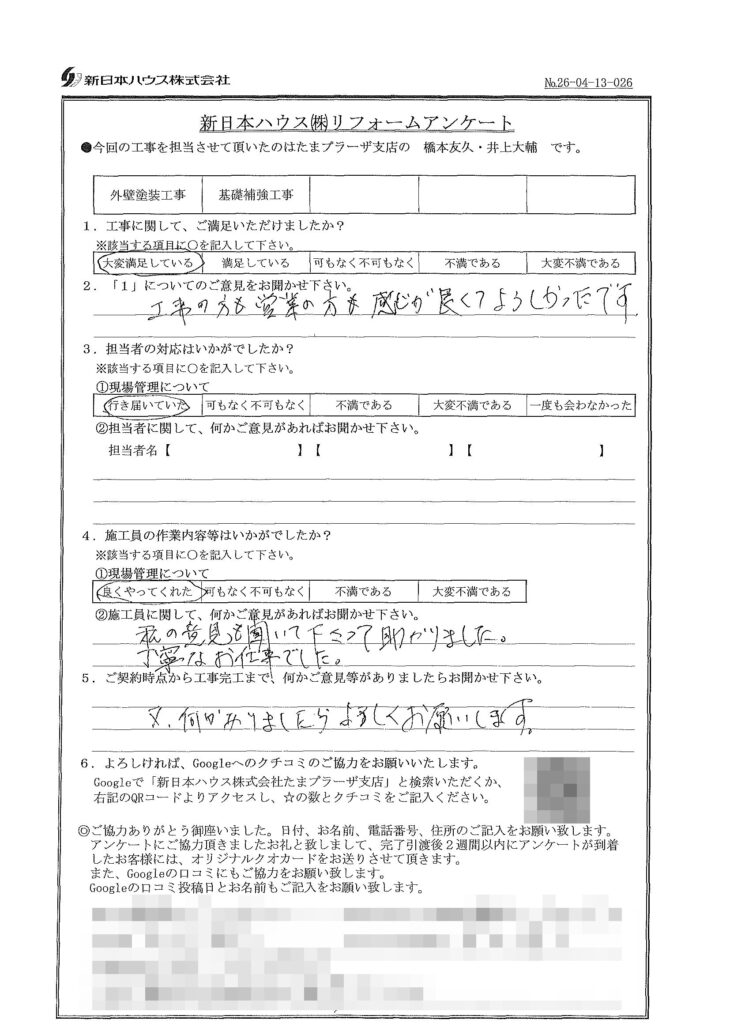 新日本ハウス株式会社
№26-04-13-026
新日本ハウス㈱リフォームアンケート
●今回の工事を担当させて頂いたのはたまプラーザ支店の　橋本友久・井上大輔　です。
外壁塗装工事　基礎補強工事
1．工事に関して、ご満足いただけましたか？
※該当する項目に○を記入して下さい。
大変満足している　満足している　可もなく不可もなく　不満である　大変不満である
2．「1」についてのご意見をお聞かせ下さい。
工事の方も営業の方も感じが良くてよろしかったです
3．担当者の対応はいかがでしたか？
※該当する項目に○を記入して下さい。
①現場管理について
行き届いていた　可もなく不可もなく　不満である　大変不満である　一度も会わなかった
②担当者に関して、何かご意見があればお聞かせ下さい。
担当者名【　】【　】【　】
4．施工員の作業内容等はいかがでしたか？
※該当する項目に○を記入して下さい。
①現場管理について
良くやってくれた　可もなく不可もなく　不満である　大変不満である
②施工員に関して、何かご意見があればお聞かせ下さい。
私の意見も聞いて下さって助かりました。
丁寧なお仕事でした。
5．ご契約時点から工事完工まで、何かご意見等がありましたらお聞かせ下さい。
又、何かありましたらよろしくお願いします。
6．よろしければ、Googleへのクチコミのご協力をお願いいたします。
Googleで「新日本ハウス株式会社たまプラーザ支店」と検索いただくか、
右記のQRコードよりアクセスし、☆の数とクチコミをご記入ください。
◎ご協力ありがとう御座いました。日付、お名前、電話番号、住所のご記入をお願い致します。
アンケートにご協力頂きましたお礼と致しまして、完了引渡後2週間以内にアンケートが到着
したお客様には、オリジナルクオカードをお送りさせて頂きます。
また、Googleの口コミにもご協力をお願い致します。
Googleの口コミ投稿日とお名前もご記入をお願い致します。